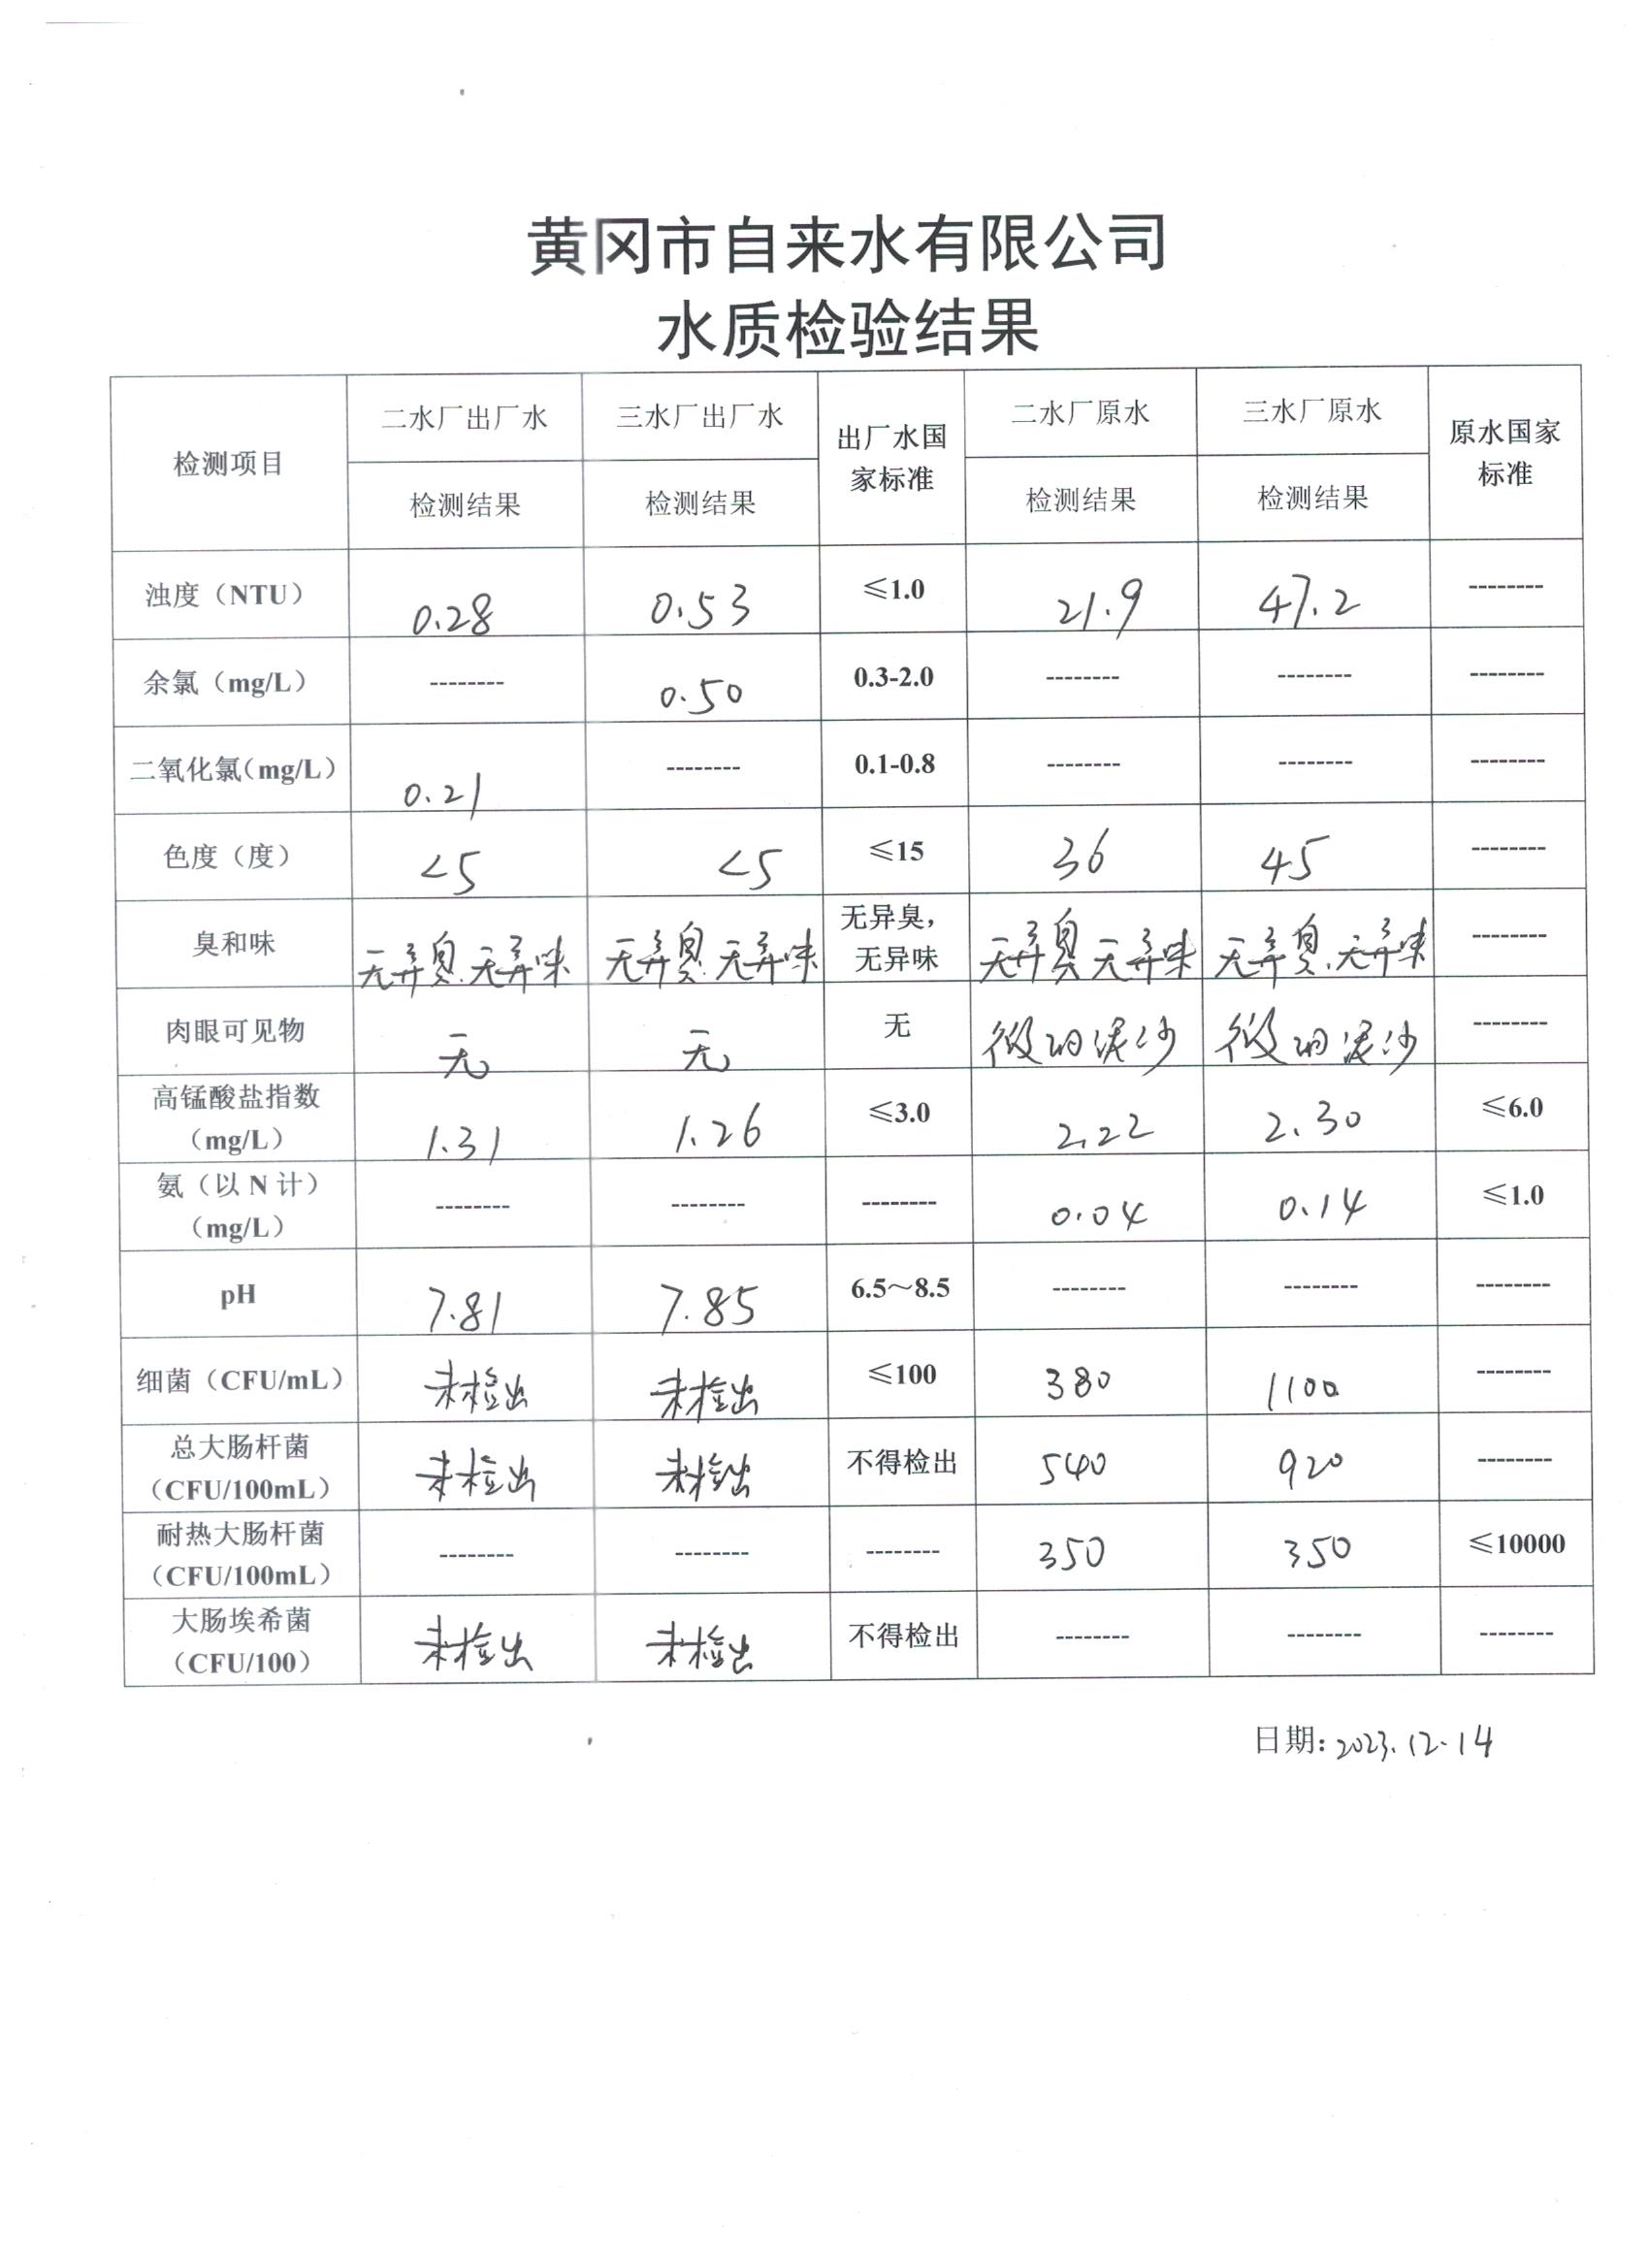 黄冈市自来水有限公司
水质检验结果
检测项目 二水厂出厂水 三水厂出厂水 出厂水国家标准 二水厂原水 三水厂原水 原水国家标准
检测结果 检测结果 检测结果 检测结果
浊度（NTU） 0.28 0.53 ≤1.0 21.9 47.2 --------
余氯（mg/L） -------- 0.50 0.3-2.0 -------- -------- --------
二氧化氯（mg/L） 0.21 -------- 0.1-0.8 -------- -------- --------
色度（度） <5 <5 ≤15 36 45 --------
臭和味 无异臭.无异味 无异臭.无异味 无异臭，无异味 无异臭 无异味 无异臭.无异味 --------
肉眼可见物 无 无 无 微细泥沙 微细泥沙 --------
高锰酸盐指数（mg/L） 1.31 1.26 ≤3.0 2.22 2.30 ≤6.0
氨（以 N 计）（mg/L） -------- -------- -------- 0.04 0.14 ≤1.0
pH 7.81 7.85 6.5～8.5 -------- -------- --------
细菌（CFU/mL） 未检出 未检出 ≤100 380 1100 --------
总大肠杆菌（CFU/100mL） 未检出 未检出 不得检出 540 920 --------
耐热大肠杆菌（CFU/100mL） -------- -------- -------- 350 350 ≤10000
大肠埃希菌（CFU/100） 未检出 未检出 不得检出 -------- -------- --------
日期: 2023.12.14